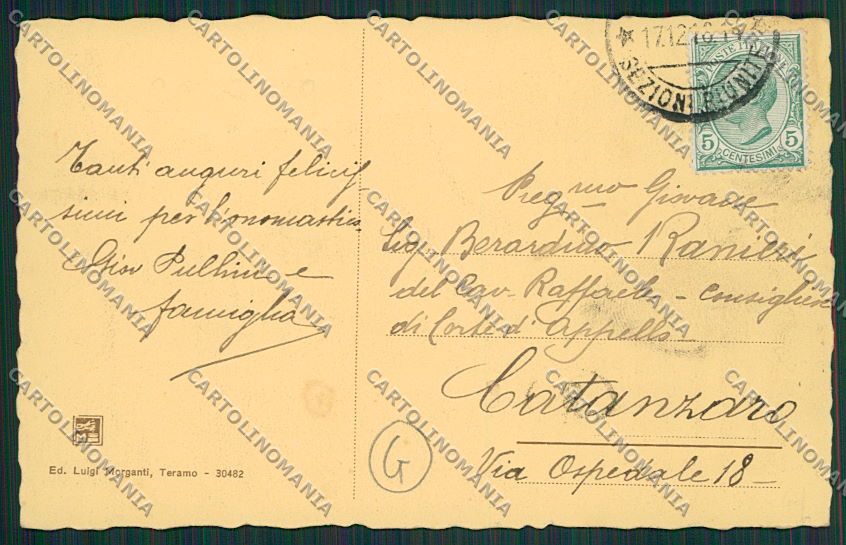 Tanti auguri felicis
simi per l'onomastico
Giov Pullini e
famiglia
Ed. Luigi Morganti, Teramo - 30482
17.12.16
SEZIONI RIUNITE
POSTE ITALIANE
5 CENTESIMI 5
Preg.mo Giovane
Sig Berardino Ranieri
del Cav. Raffaele - Consigliere
di Corte d'Appello -
Catanzaro
Via Ospedale 18 -
G
CARTOLINOMANIA